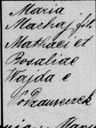 Maria
Machaj fil.
Mathaei et
Rosaliae
Wajda e